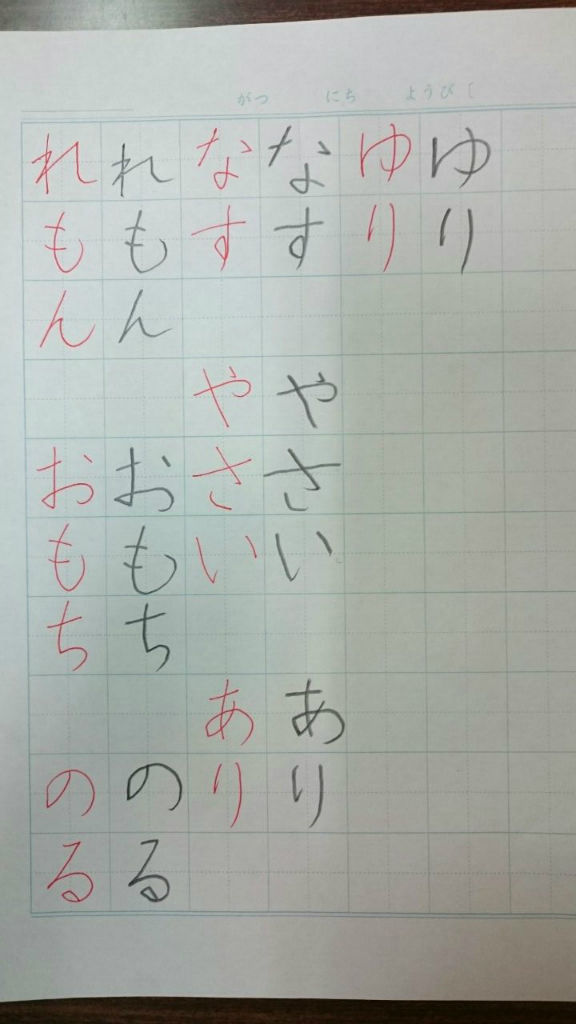 がつ にち ようび
ゆり
ゆり
なす やさい あり
なす やさい あり
れもん おもち のる
れもん おもち のる